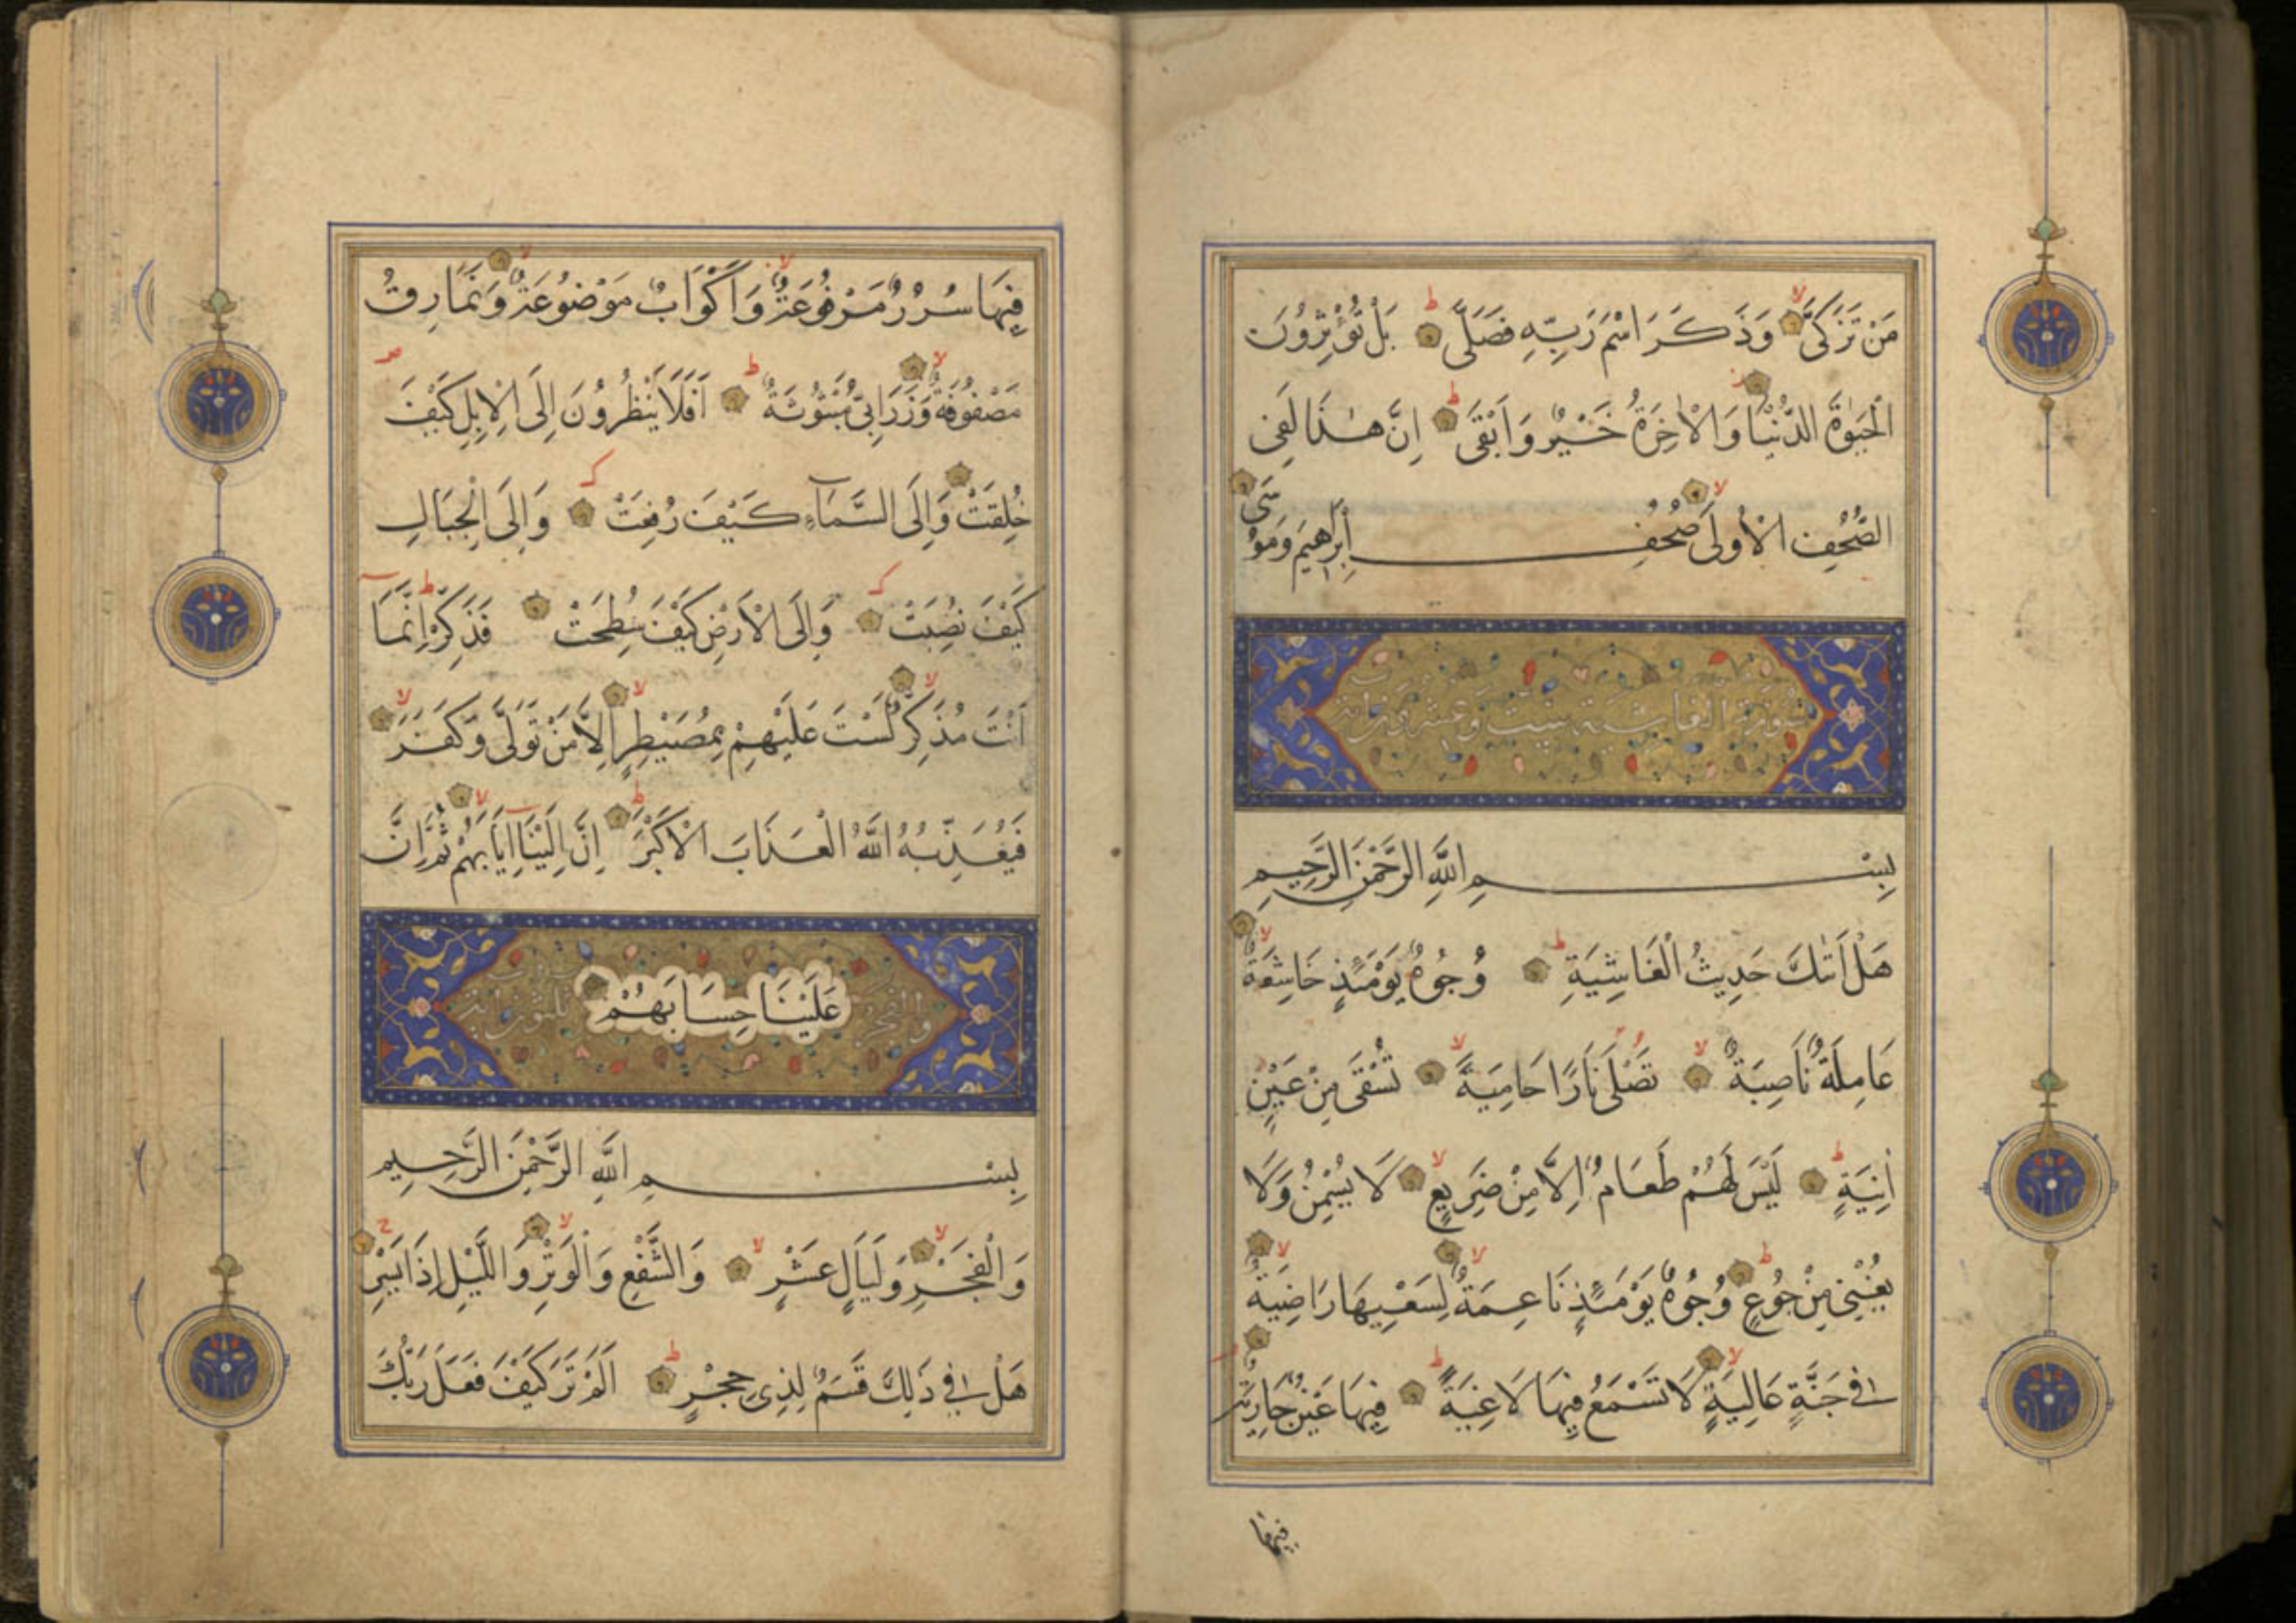 مَنْ تَزَكَّىٰ وَذَكَرَ اسْمَ رَبِّهِ فَصَلَّىٰ بَلْ تُؤْثِرُونَ
الْحَيٰوةَ الدُّنْيَا وَالْاٰخِرَةُ خَيْرٌ وَاَبْقَىٰ اِنَّ هٰذَا لَفِى
الصُّحُفِ الْاُولَىٰ صُحُفِ اِبْرٰهِيمَ وَمُوسَىٰ
سُورَةُ الغاشية ست وعشرون اية
بِسْمِ اللّٰهِ الرَّحْمٰنِ الرَّحِيمِ
هَلْ اَتٰىكَ حَدِيثُ الْغَاشِيَةِ وُجُوهٌ يَوْمَئِذٍ خَاشِعَةٌ
عَامِلَةٌ نَاصِبَةٌ تَصْلَىٰ نَارًا حَامِيَةً تُسْقَىٰ مِنْ عَيْنٍ
اٰنِيَةٍ لَيْسَ لَهُمْ طَعَامٌ اِلَّا مِنْ ضَرِيعٍ لَا يُسْمِنُ وَلَا
يُغْنِى مِنْ جُوعٍ وُجُوهٌ يَوْمَئِذٍ نَاعِمَةٌ لِسَعْيِهَا رَاضِيَةٌ
فِى جَنَّةٍ عَالِيَةٍ لَا تَسْمَعُ فِيهَا لَاغِيَةً فِيهَا عَيْنٌ جَارِيَةٌ
فيها
فِيهَا سُرُرٌ مَرْفُوعَةٌ وَاَكْوَابٌ مَوْضُوعَةٌ وَنَمَارِقُ
مَصْفُوفَةٌ وَزَرَابِىُّ مَبْثُوثَةٌ اَفَلَا يَنْظُرُونَ اِلَى الْاِبِلِ كَيْفَ
خُلِقَتْ وَاِلَى السَّمَاءِ كَيْفَ رُفِعَتْ وَاِلَى الْجِبَالِ
كَيْفَ نُصِبَتْ وَاِلَى الْاَرْضِ كَيْفَ سُطِحَتْ فَذَكِّرْ اِنَّمَا
اَنْتَ مُذَكِّرٌ لَسْتَ عَلَيْهِمْ بِمُصَيْطِرٍ اِلَّا مَنْ تَوَلَّىٰ وَكَفَرَ
فَيُعَذِّبُهُ اللّٰهُ الْعَذَابَ الْاَكْبَرَ اِنَّ اِلَيْنَا اِيَابَهُمْ ثُمَّ اِنَّ
والفجر عَلَيْنَا حِسَابَهُمْ ثلثون اية
بِسْمِ اللّٰهِ الرَّحْمٰنِ الرَّحِيمِ
وَالْفَجْرِ وَلَيَالٍ عَشْرٍ وَالشَّفْعِ وَالْوَتْرِ وَاللَّيْلِ اِذَا يَسْرِ
هَلْ فِى ذٰلِكَ قَسَمٌ لِذِى حِجْرٍ اَلَمْ تَرَ كَيْفَ فَعَلَ رَبُّكَ